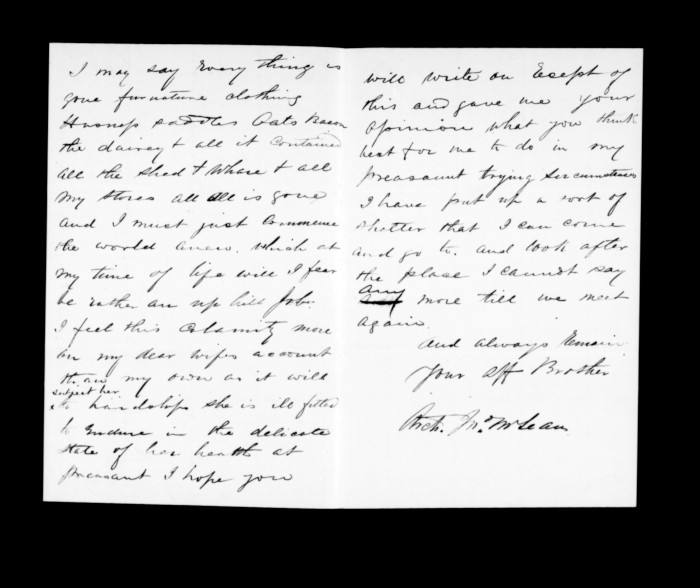 I may say Every thing is
gone furnature clothing
Harness saddles Oats Bacon
the dairey & all it contained
all the shed & Whare & all
my stores all all is gone
and I must just Commence
the world anew. which at
my time of life will I fear
be rather an up hill Job.
I feel this Calamity more
on my dear wifes account
than my own as it will
subject her
to hardships she is ill fitted
to Endure in the delicate
state of her health at
preasant I hope you
will write on Esept of
this and gave me your
opinion what you think
best for me to do in my
preasant trying sircumstances
I have put up a sort of
shelter that I can come
and go to. and look after
the place I cannot say
any
more till we meet
again.
and always Remain
Your Aff Brother
Arch. Jno. McLean